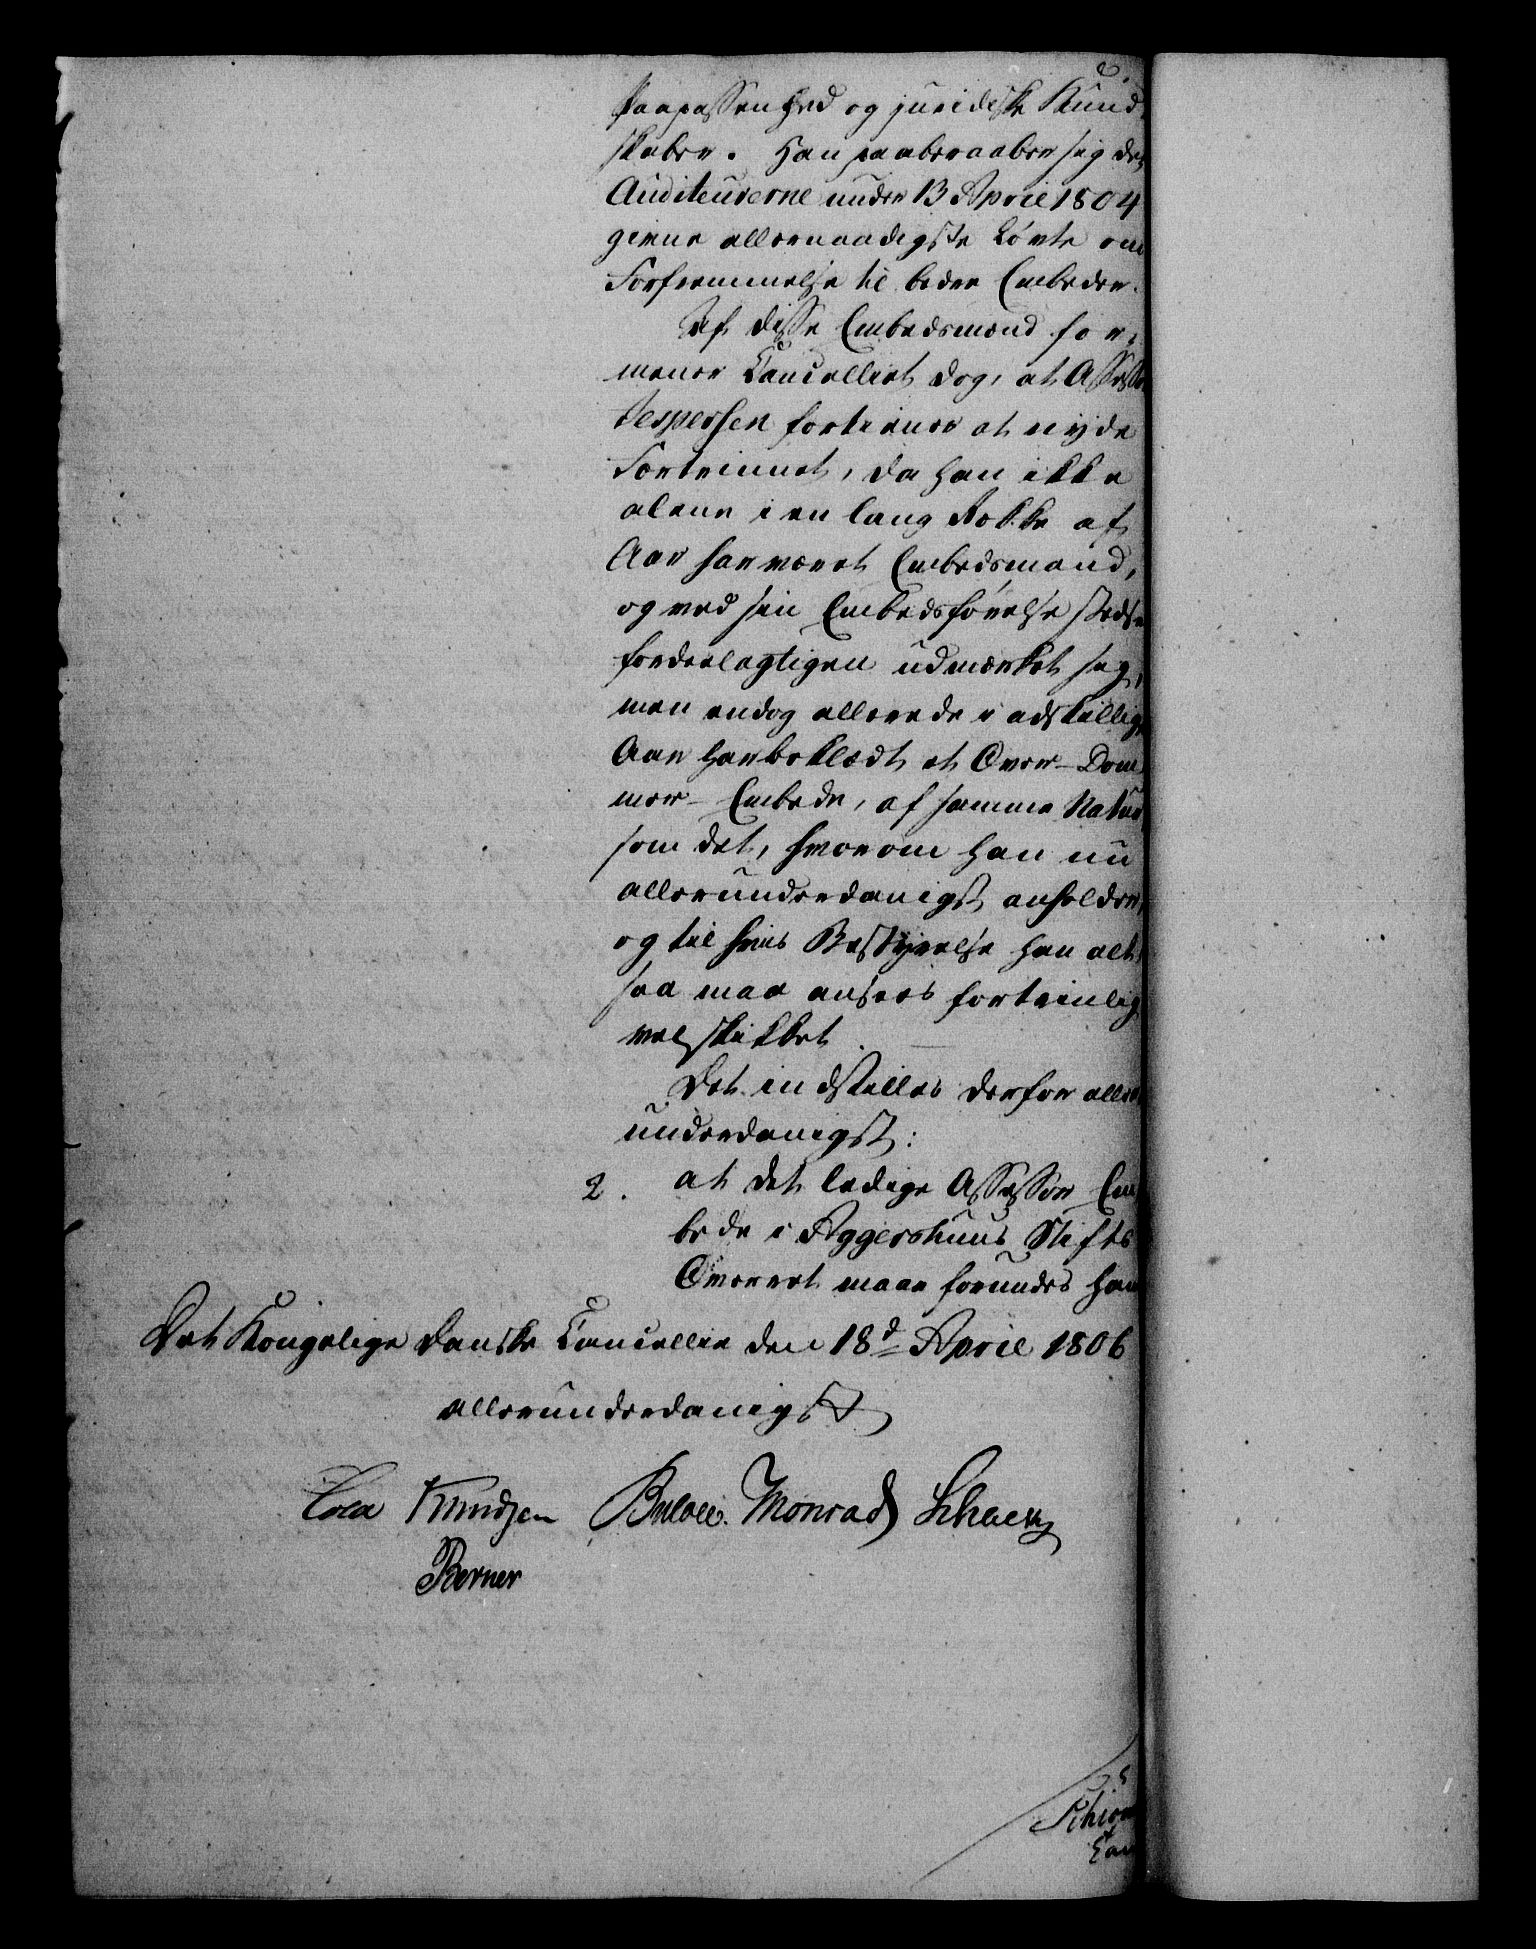 Paapassenhed og juridiske Kund
skaber. Han paaberaaber sig det
Auditeurerne under 13 April 1804
givne allernaadigste Løvte om
Forfremmelse til bedre Embeder.
Af disse Embedsmænd for-
mener Cancelliet dog, at Assessor
Jespersen fortiener at nyde
Fortrinnet, da han ikke
alene i en lang Række af
Aar har været Embedsmand,
og ved sin Embedsførelse stedse
fordeelagtigen udmærket sig,
men endog allerede i adskillige
Aar har beklædt et Over-Dom
mer-Embede, af samme Natur
som det, hvorom han nu
allerunderdanigst anholder,
og til hvis Bestyrelse han alt
saa maa ansees fortrinlig
vel skikket.
Det indstilles derfor aller
underdanigst:
2. at det ledige Assessor Em
bede i Aggershuus Stifts
Overret maae forundes ham
Det Kongelige Danske Cancellie den 18d April 1806
allerunderdanigst
Cold Knudsen Bülow. Monrad Schack
Berner